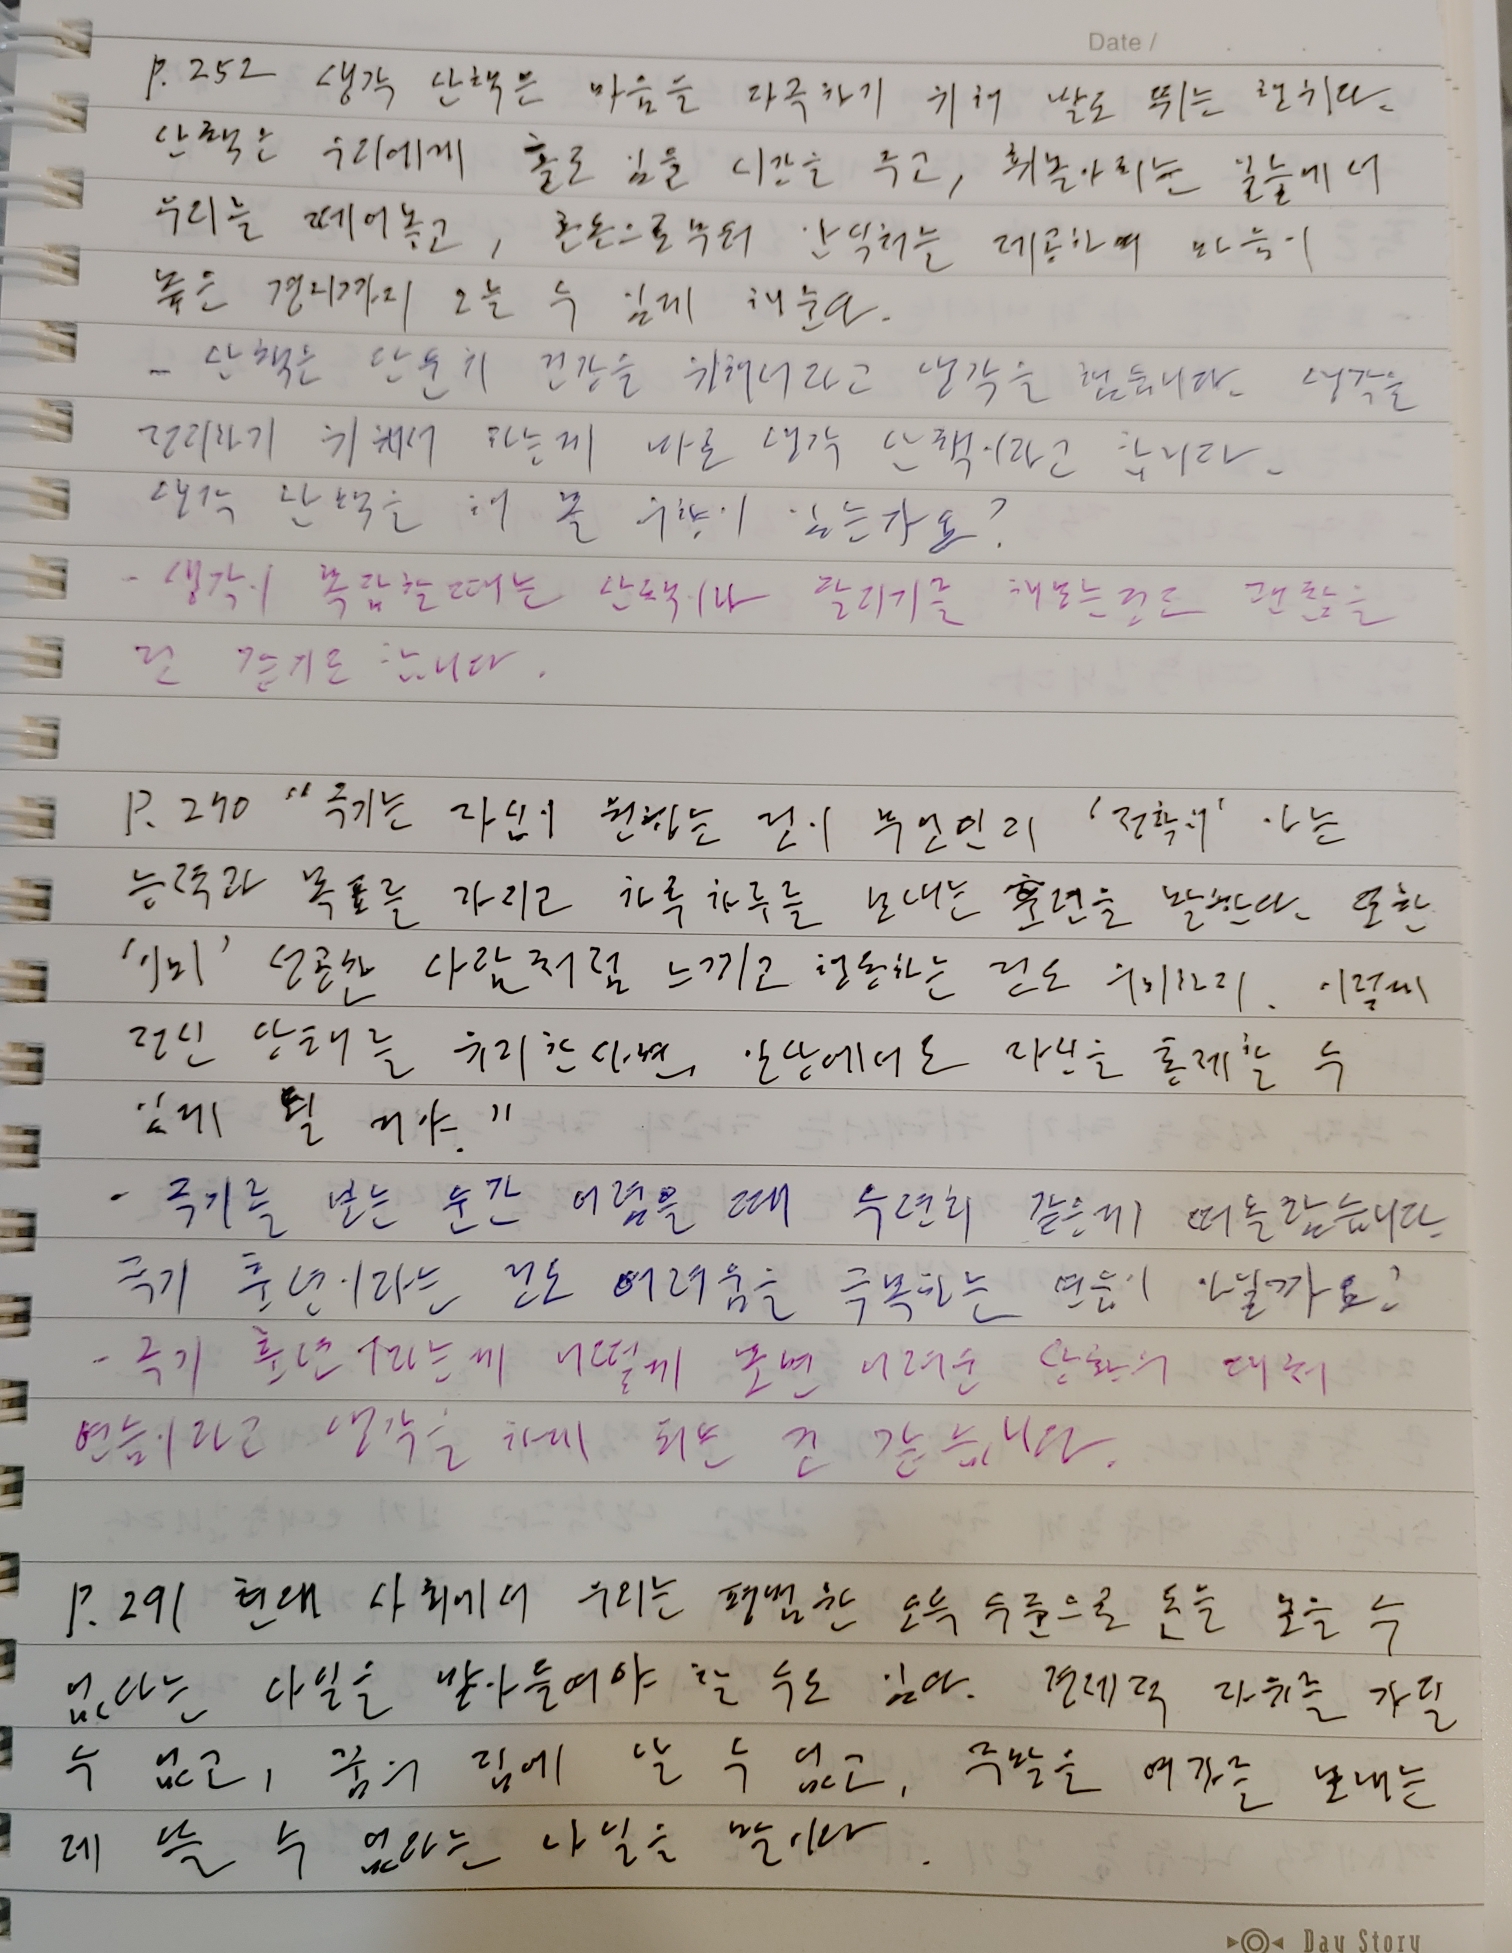 Date /
p. 252 생각 산책은 마음을 자극하기 위해 발로 뛰는 행위다.
산책은 우리에게 홀로 있을 시간을 주고, 휘몰아치는 일들에서
우리를 떼어놓고, 혼돈으로부터 안식처를 제공하며 마음이
높은 경지까지 오를 수 있게 해준다.
- 산책은 단순히 건강을 위해서라고 생각을 했습니다. 생각을
정리하기 위해서 하는게 바로 생각 산책이라고 합니다.
생각 산책을 해 볼 의향이 있는가요?
- 생각이 복잡할때는 산책이나 달리기를 해보는것도 괜찮을
것 같기도 합니다.
P. 290 "극기는 자신이 원하는 것이 무엇인지 '정확히' 아는
능력과 목표를 가지고 하루하루를 보내는 훈련을 말한다. 또한
'이미' 성공한 사람처럼 느끼고 행동하는 것도 의미하지. 이렇게
정신 상태를 유지한다면, 일상에서도 자신을 통제할 수
있게 될 거야."
- 극기를 보는 순간 어렸을 때 수련회 같은게 떠올랐습니다
극기 훈련이라는 것도 어려움을 극복하는 연습이 아닐까요?
- 극기 훈련이라는게 어떻게 보면 어려운 상황의 대처
연습이라고 생각을 하게 되는 것 같습니다.
P. 291 현대 사회에서 우리는 평범한 소득 수준으로 돈을 모을 수
없다는 사실을 받아들여야 할 수도 있다. 경제적 자유를 가질
수 없고, 꿈의 집에 살 수 없고, 주말을 여가를 보내는
데 쓸 수 없다는 사실을 말이다.
Day Story